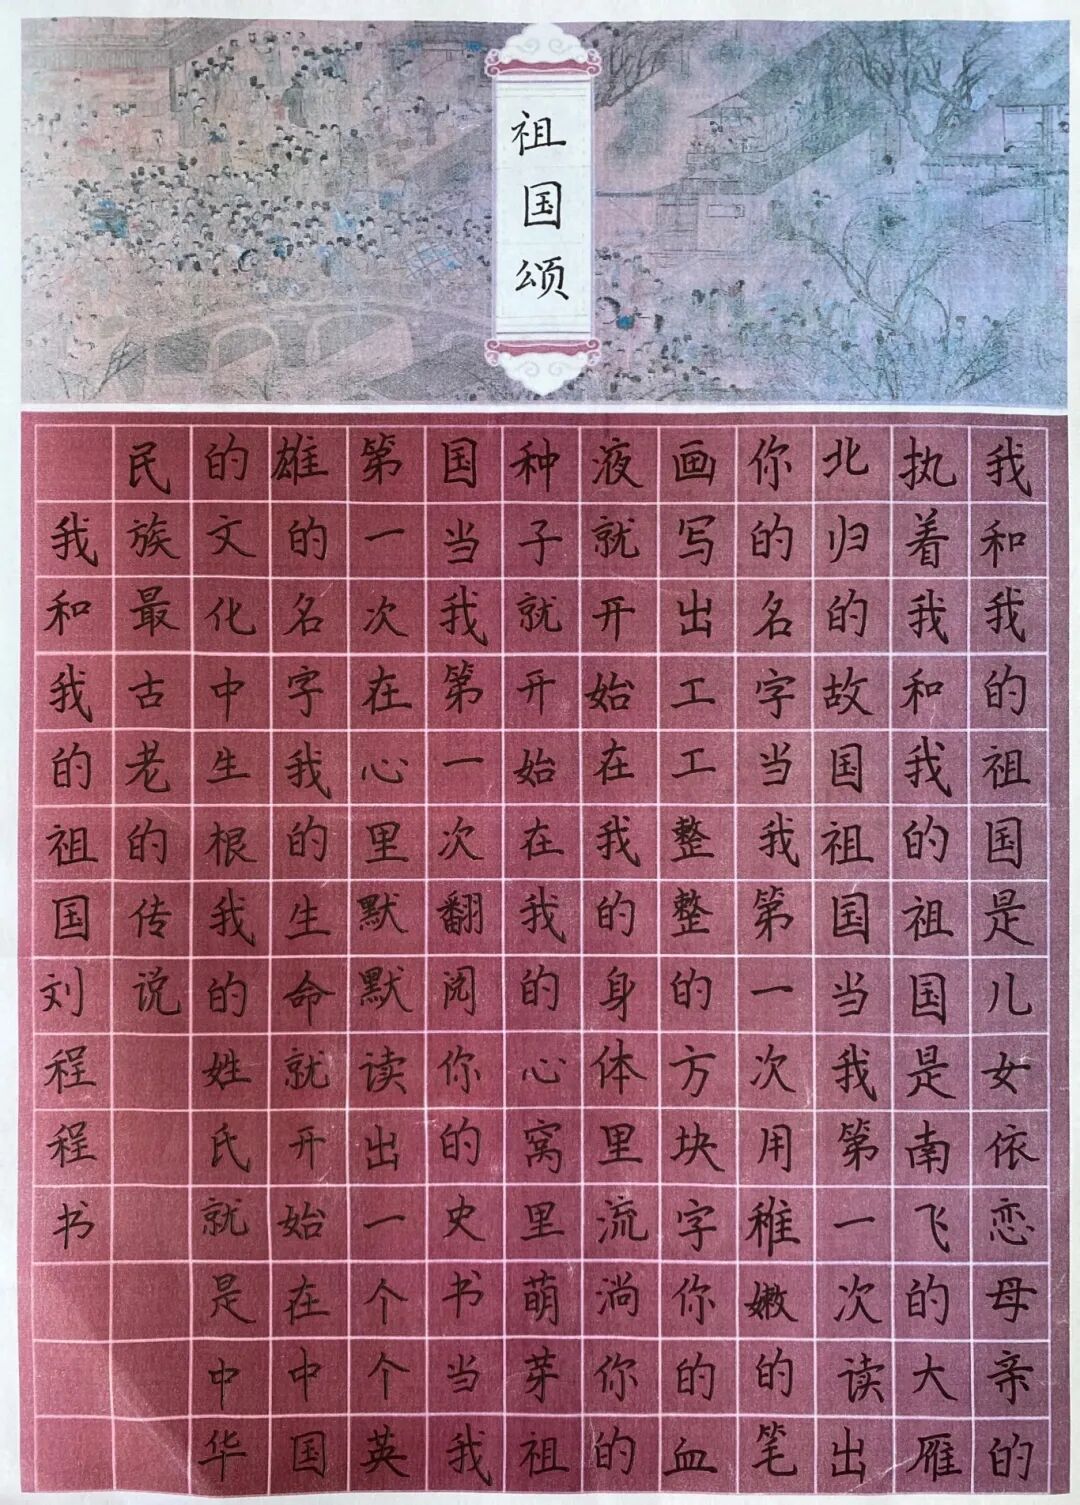 祖国颂
我和我的祖国是儿女依恋母亲的
执着我和我的祖国是南飞的大雁
北归的故国祖国当我第一次读出
你的名字当我第一次用稚嫩的笔
画写出工工整整的方块字你的血
液就开始在我的身体里流淌你的
种子就开始在我的心窝里萌芽祖
国当我第一次翻阅你的史书当我
第一次在心里默默读出一个个英
雄的名字我的生命就开始在中国
的文化中生根我的姓氏就是中华
民族最古老的传说
我和我的祖国刘程程书